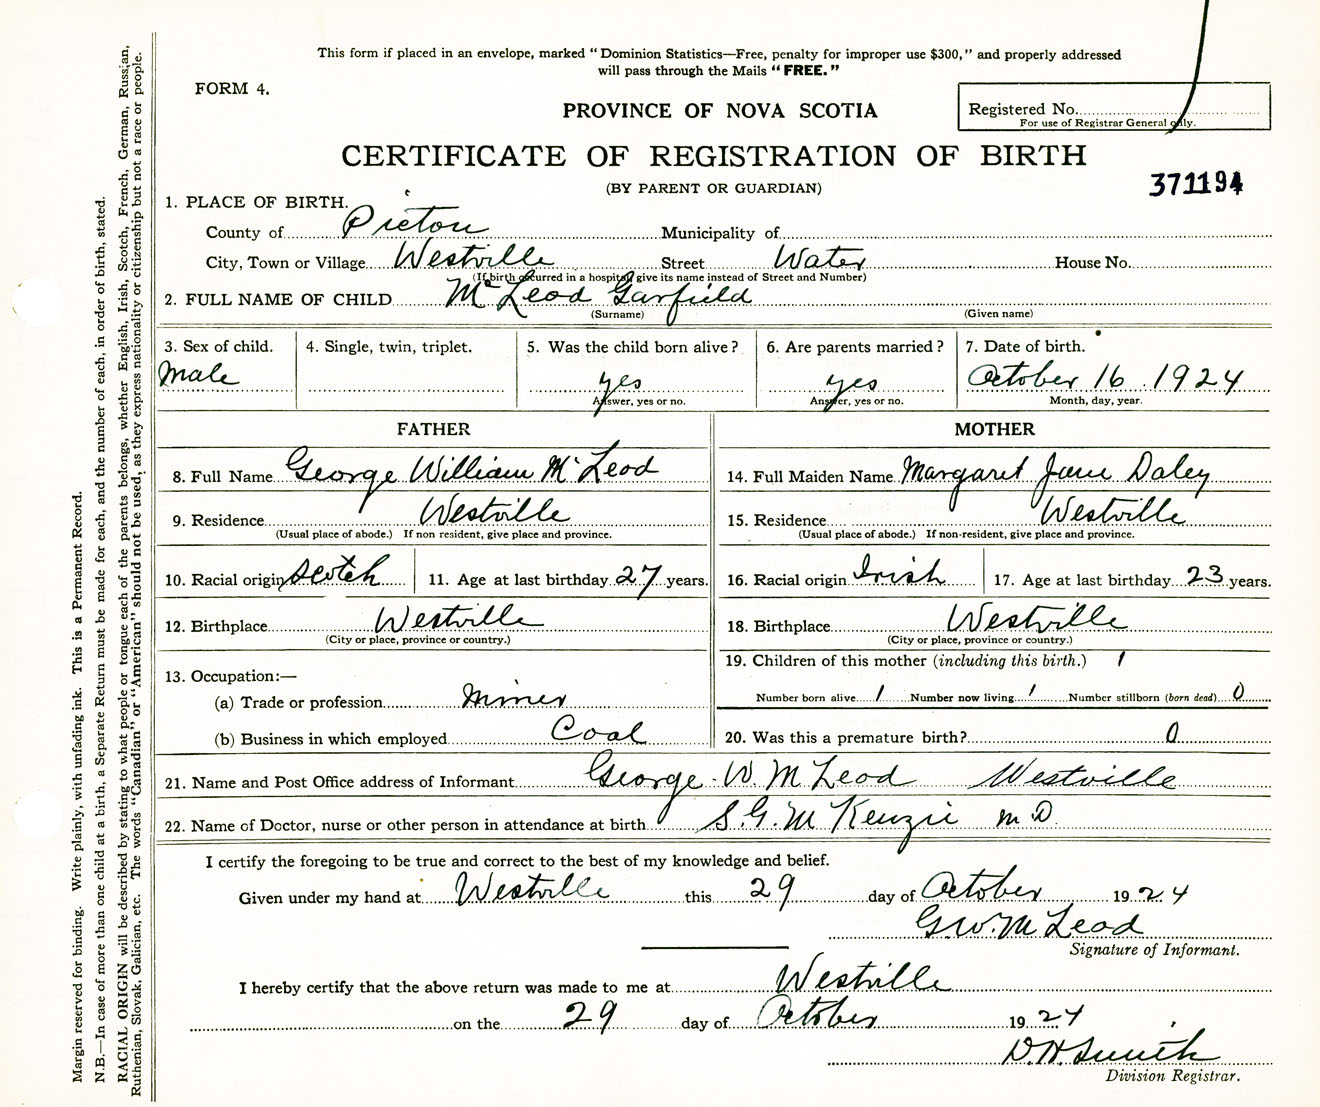 This form if placed in an envelope, marked “Dominion Statistics—Free, penalty for improper use $300,” and properly addressed
will pass through the Mails “FREE.”
FORM 4.
PROVINCE OF NOVA SCOTIA
Registered No.
For use of Registrar General only.
CERTIFICATE OF REGISTRATION OF BIRTH
(BY PARENT OR GUARDIAN)
371194
1. PLACE OF BIRTH.
County of Pictou Municipality of
City, Town or Village Westville Street Water House No.
(If birth occurred in a hospital give its name instead of Street and Number)
2. FULL NAME OF CHILD McLeod Garfield
(Surname) (Given name)
3. Sex of child. 4. Single, twin, triplet. 5. Was the child born alive? 6. Are parents married? 7. Date of birth.
Male yes yes October 16 1924
Answer, yes or no. Answer, yes or no. Month, day, year.
FATHER MOTHER
8. Full Name George William McLeod 14. Full Maiden Name Margaret Jane Daley
9. Residence Westville 15. Residence Westville
(Usual place of abode.) If non resident, give place and province. (Usual place of abode.) If non-resident, give place and province.
10. Racial origin Scotch 11. Age at last birthday 27 years. 16. Racial origin Irish 17. Age at last birthday 23 years.
12. Birthplace Westville 18. Birthplace Westville
(City or place, province or country.) (City or place, province or country.)
13. Occupation:— 19. Children of this mother (including this birth.) 1
(a) Trade or profession Miner Number born alive 1 Number now living 1 Number stillborn (born dead) 0
(b) Business in which employed Coal 20. Was this a premature birth? 0
21. Name and Post Office address of Informant George W. McLeod Westville
22. Name of Doctor, nurse or other person in attendance at birth S.G. McKenzie M.D.
I certify the foregoing to be true and correct to the best of my knowledge and belief.
Given under my hand at Westville this 29 day of October 1924
G.W. McLeod
Signature of Informant.
I hereby certify that the above return was made to me at Westville
on the 29 day of October 1924
D.H. Smith
Division Registrar.
Margin reserved for binding. Write plainly, with unfading ink. This is a Permanent Record.
N.B.—In case of more than one child at a birth, a Separate Return must be made for each, and the number of each, in order of birth, stated.
RACIAL ORIGIN will be described by stating to what people or tongue each of the parents belongs, whether English, Irish, Scotch, French, German, Russian,
Ruthenian, Slovak, Galician, etc. The words “Canadian” or “American” should not be used, as they express nationality or citizenship but not a race or people.